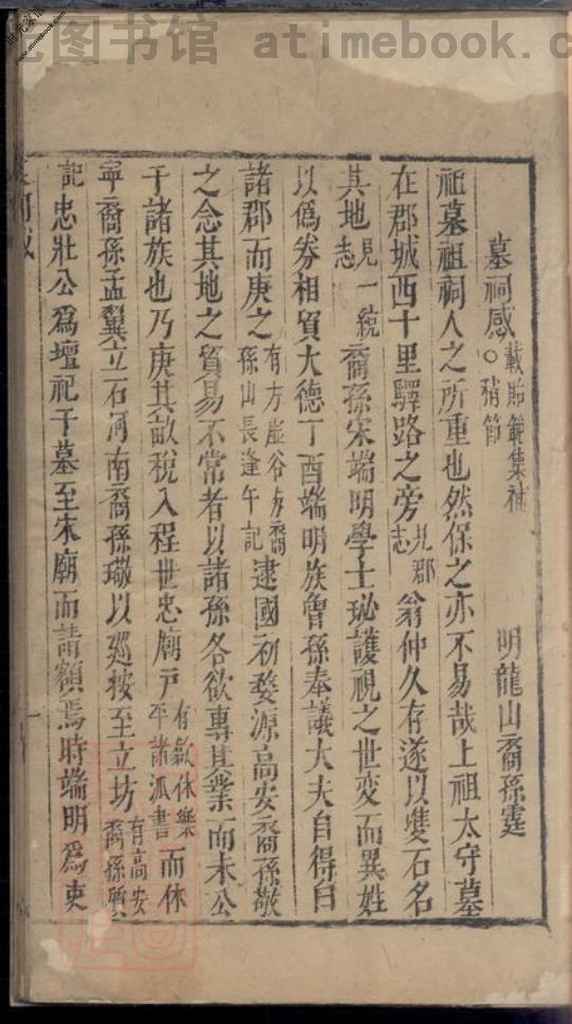 图书馆 atimebook.c
墓祠感○載貽範集補稍節 明龍山裔孫霆
祖墓祖祠人之所重也然保之亦不易哉上祖太守墓
在郡城西十里驛路之旁見郡志翁仲久存遂以雙石名
其地見一統志裔孫宋端明學士珌護視之世変而異姓
以僞券相貿大德丁酉端明族曾孫奉議大夫自得白
諸郡而庚之有方虚谷序裔孫山長逢午記逮國初婺源高安裔孫敬
之念其地之貿易不常者以諸孫各欲專其業而未公
于諸族也乃庚其畝稅入程世忠廟戸有歙休樂平諸派書而休
寧裔孫孟翼立石河南裔孫璥以廵按至立坊有高安裔孫
記忠壯公爲壇祀于墓至宋廟而請額焉時端明爲吏